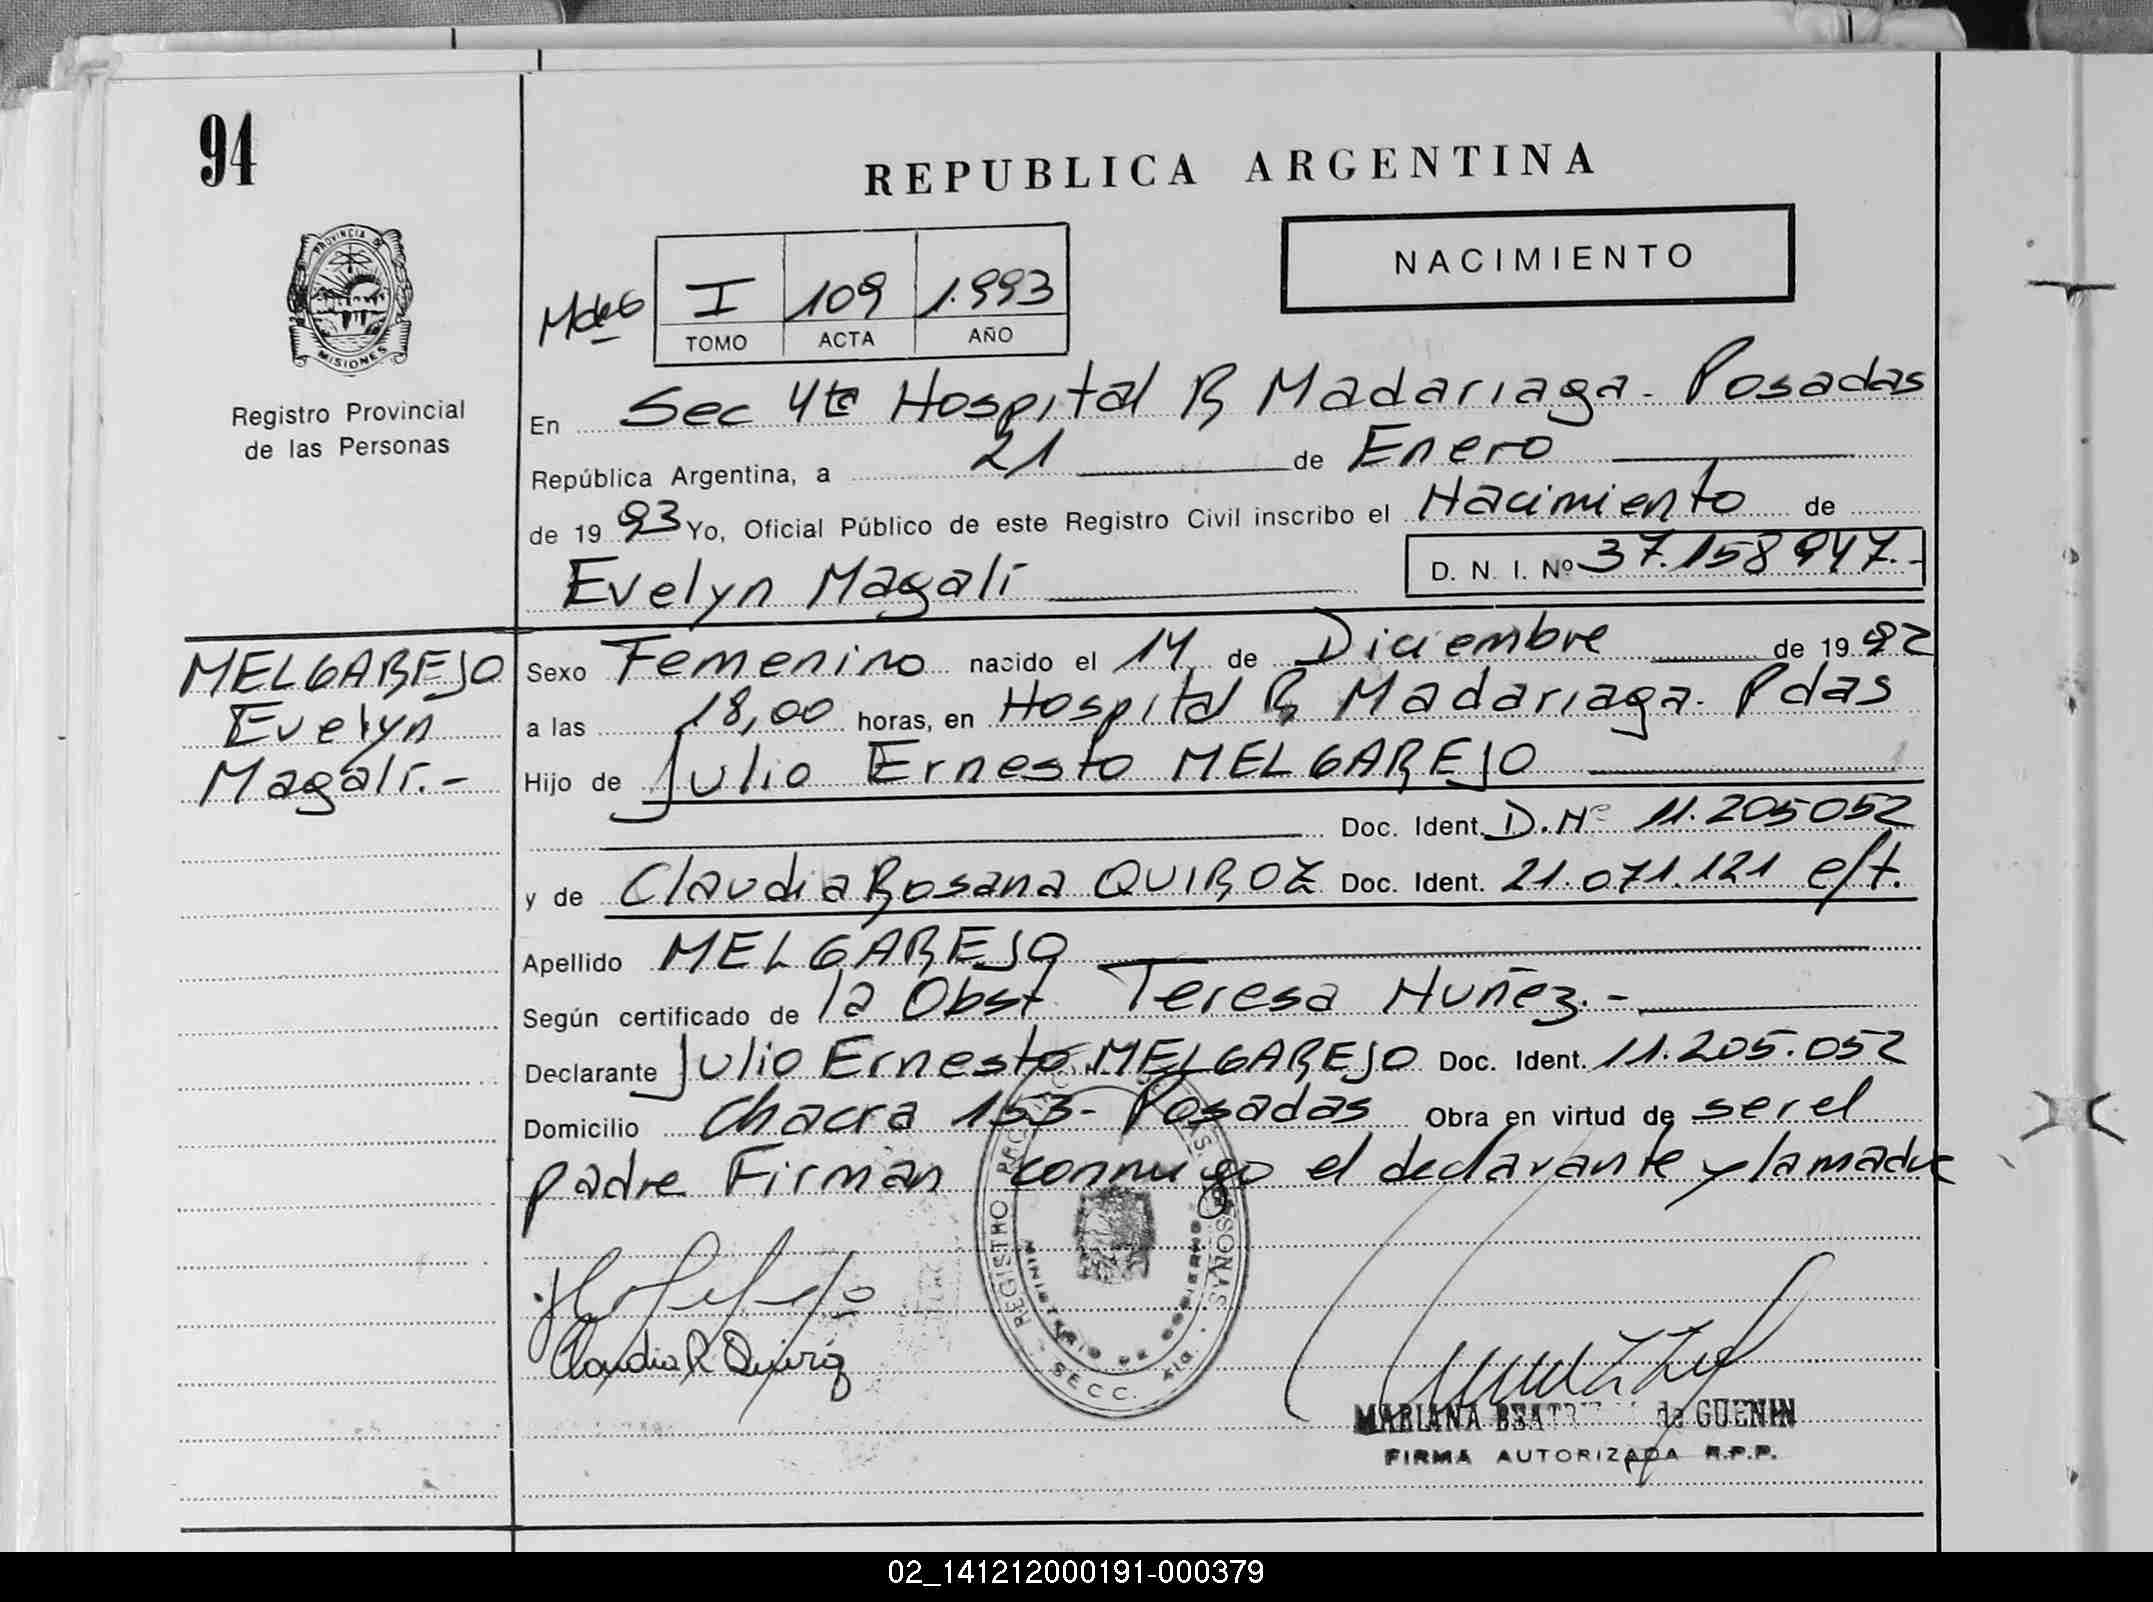 94
REPUBLICA ARGENTINA
NACIMIENTO
I 109 1.993
TOMO ACTA AÑO
PROVINCIA DE MISIONES
Registro Provincial
de las Personas
En Sec 4ta Hospital R Madariaga - Posadas
República Argentina, a 21 de Enero
de 1993 Yo, Oficial Público de este Registro Civil inscribo el Nacimiento de
Evelyn Magalí D. N. I. Nº 37.158947.-
MELGAREJO
Evelyn
Magalí.-
Sexo Femenino nacido el 14 de Diciembre de 1992
a las 18,00 horas, en Hospital R Madariaga. Pdas
Hijo de Julio Ernesto MELGAREJO
Doc. Ident. D.Nº 11.205052
y de Claudia Rosana QUIROZ Doc. Ident. 21.071.121 e/t.
Apellido MELGAREJO
Según certificado de la Obst Teresa Nuñez.-
Declarante Julio Ernesto MELGAREJO Doc. Ident. 11.205.052
Domicilio Chacra 153- Posadas Obra en virtud de ser el
padre Firman conmigo el declarante y la madre
Claudia R Quiroz
REGISTRO PERSONAS
MINISTERIO DE GOBIERNO
SECC.
MARIANA de GUENIN
FIRMA AUTORIZADA R.P.P.
02_141212000191-000379